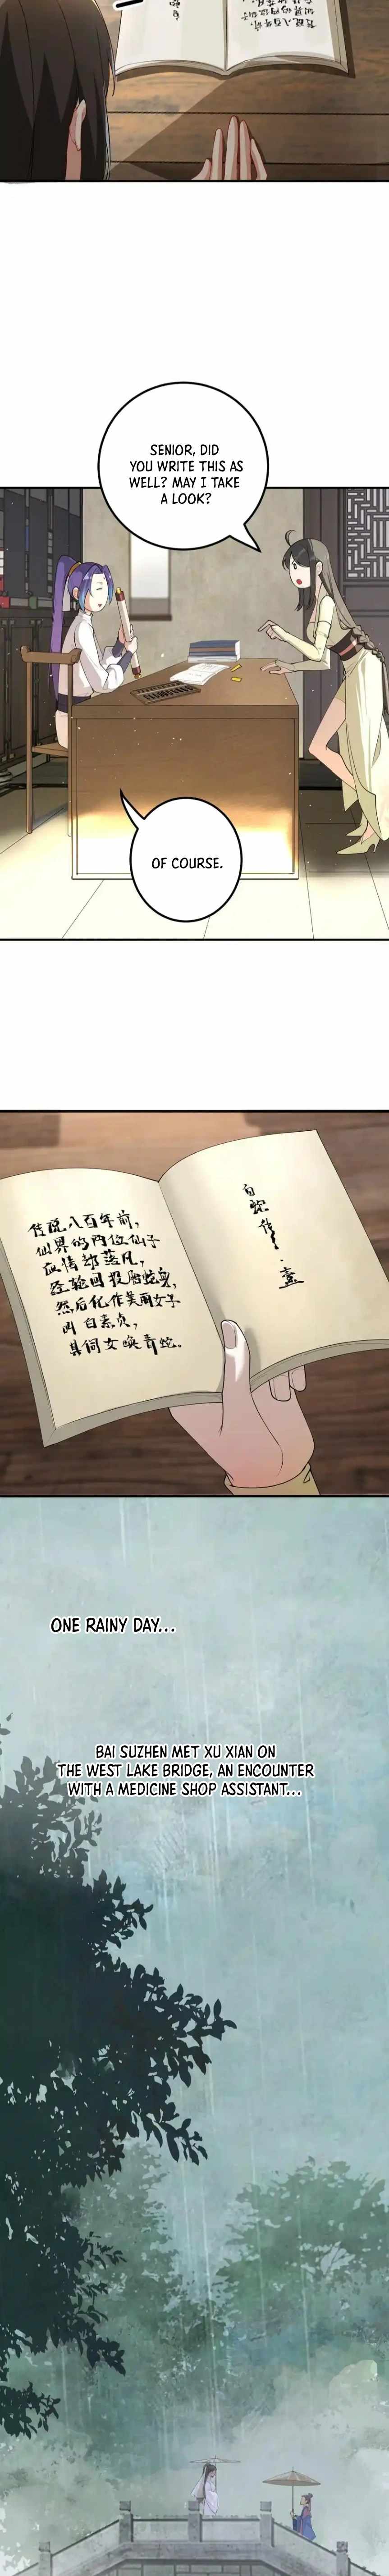 SENIOR, DID
YOU WRITE THIS AS
WELL? MAY I TAKE
A LOOK?
OF COURSE.
传说八百年前，
仙界的两位仙子
因情却落凡，
经轮回投胎蛇身，
然后化作美丽女子
叫白素贞，
其伺女唤青蛇。
白蛇传
ONE RAINY DAY...
BAI SUZHEN MET XU XIAN ON
THE WEST LAKE BRIDGE, AN ENCOUNTER
WITH A MEDICINE SHOP ASSISTANT...